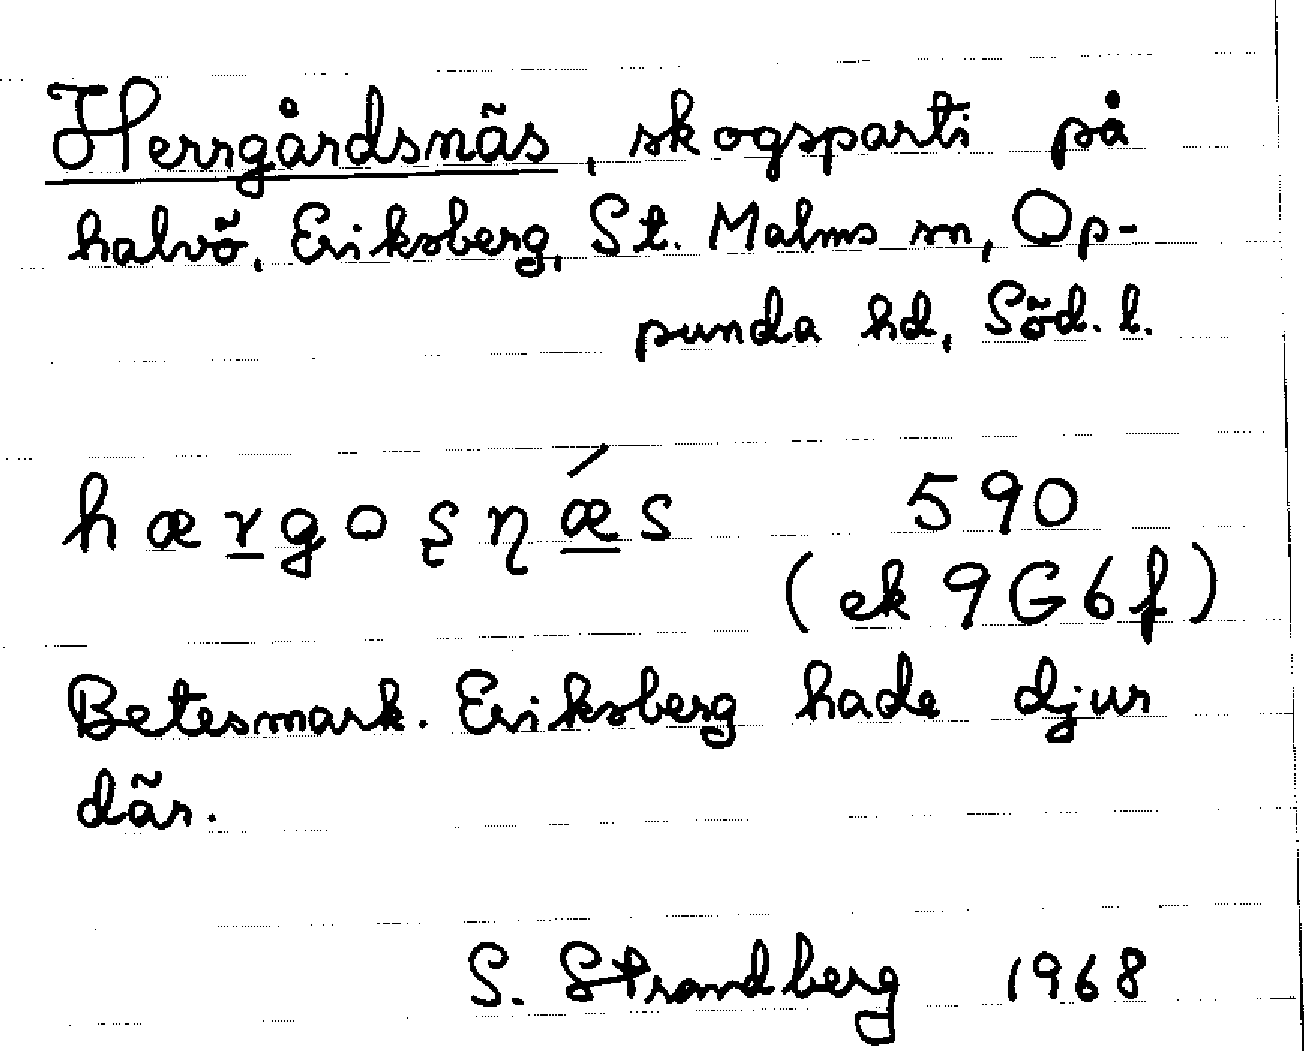 Herrgårdsnäs, skogsparti på
halvö, Eriksberg, St. Malms sn, Op-
punda hd, Söd. l.
hærgoʂɳǽs 590
(ek 9G6f)
Betesmark. Eriksberg hade djur
där.
S. Strandberg 1968